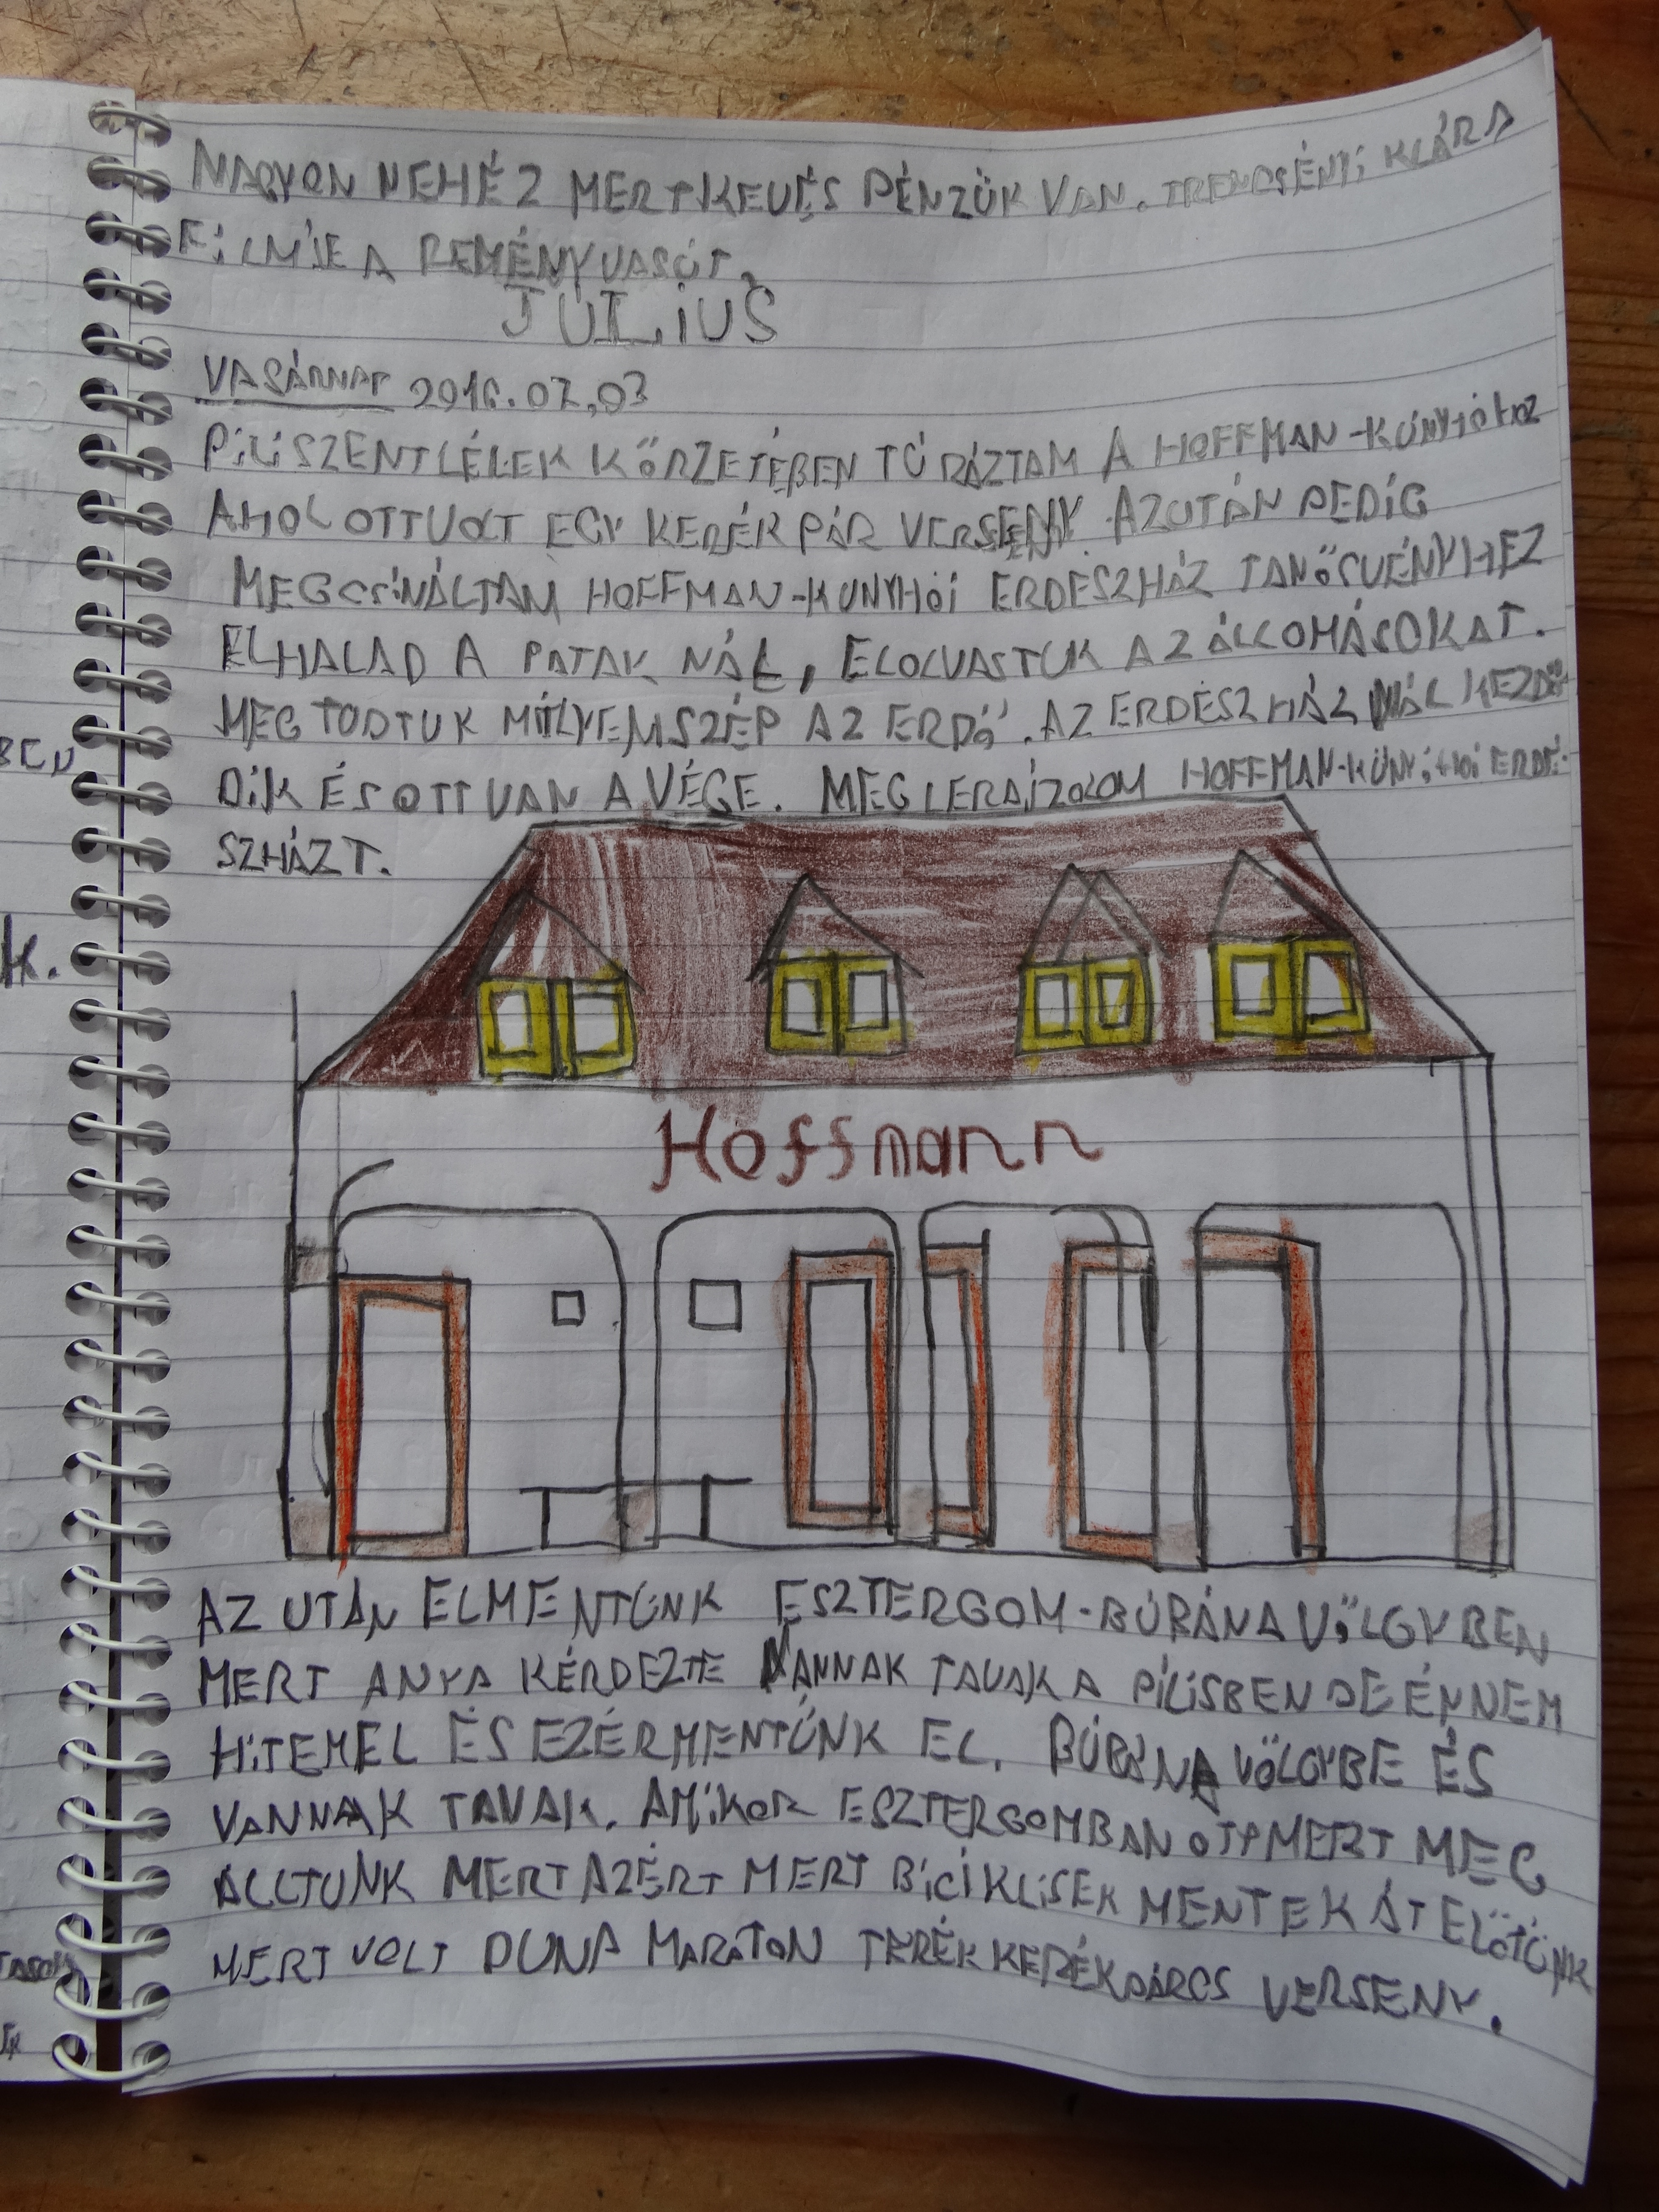 NAGYON NEHÉZ MERT KEVÉS PÉNZÜK VAN. TRENCSÉNYI KLÁRA
FILMJE A REMÉNY VASÚT.
JÚLIUS
VASÁRNAP 2016.07.03
PILISZENTLÉLEK KÖRZETÉBEN TÚRÁZTAM A HOFFMAN-KUNYHÓHOZ
AHOL OTT VOLT EGY KERÉKPÁR VERSENY. AZUTÁN PEDIG
MEGCSINÁLTAM HOFFMAN-KUNYHÓI ERDÉSZHÁZ TANÖSVÉNYHEZ
ELHALAD A PATAK NÁL, ELOLVASTUK AZ ÁLLOMÁSOKAT.
MEG TUDTUK MILYEM SZÉP AZ ERDŐ. AZ ERDÉSZHÁZ NÁL KEZDŐ-
DIK ÉS OTT VAN A VÉGE. MEGLERAJZOLOM HOFFMAN-KUNYHÓI ERDÉ-
SZHÁZT.
Hoffmann
AZ UTÁN ELMENTÜNK ESZTERGOM-BÚBÁNA VÖLGYBEN
MERT ANYA KÉRDEZTE VANNAK TAVAK A PILISBEN DE ÉN NEM
HITEM EL ÉS EZÉR MENTÜNK EL. BÚBÁNA VÖLGYBE ÉS
VANNAK TAVAK. AMIKOR ESZTERGOMBAN OTT MERT MEG
ALLTUNK MERT AZÉRT MERT BICIKLISEK MENTEK ÁT ELŐTÜNK
MERT VOLT DUNA MARATON TERÉKKERÉKPÁROS VERSENY.